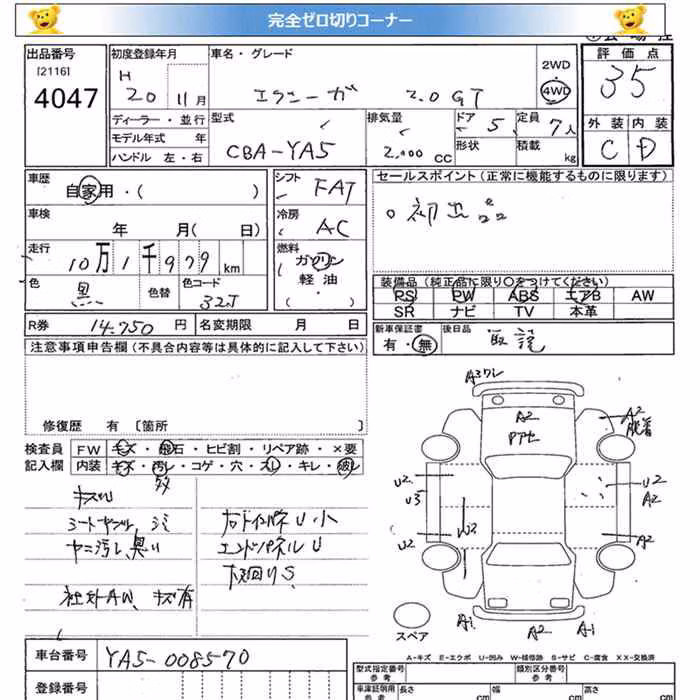 完全ゼロ切りコーナー
出品番号
[2116]
4047
初度登録年月
H
20 11月
車名・グレード
エクシーガ 2.0GT
2WD
4WD
評価点
35
ディーラー・並行
モデル年式 年
ハンドル 左・右
型式
CBA-YA5
排気量
2,000 CC
ドア 5
形状
定員 7人
積載 kg
外装 内装
C D
車歴
自家用・( )
車検
年 月( 日)
走行
10万1千979km
色
黒
色替
色コード
32J
シフト
FAT
冷房
AC
燃料
ガソリン
軽油
( ・ )
セールスポイント(正常に機能するものに限ります)
○初出品
装備品(純正品に限り○をつけてください)
PS PW ABS エアB AW
SR ナビ TV 本革
R券 14,750円
名変期限 月 日
新車保証書
有・無
後日品
取説
注意事項申告欄(不具合内容等は具体的に記入して下さい)
修復歴 有 [箇所 ]
検査員
記入欄
FW キズ・飛石・ヒビ割・リペア跡・×要
内装 キズ・汚レ・コゲ・穴・スレ・キレ・破レ
多
キズU
シートヤブレ、シミ
ヤニ汚レ、臭い
社外AW、キズ有
エンドパネルU
下回りS
A3ワレ
A2
A2
U2
U3
U2
W3
U2
A2
A2
A1
A2
A1
スペア
A-キズ E-エクボ U-凹み W-補修跡 S-サビ C-腐食 XX-交換済
車台番号
YA5-008570
登録番号
型式指定番号
参考
類別区分番号
参考
車庫証明用
参考
長さ cm
幅 cm
高さ cm